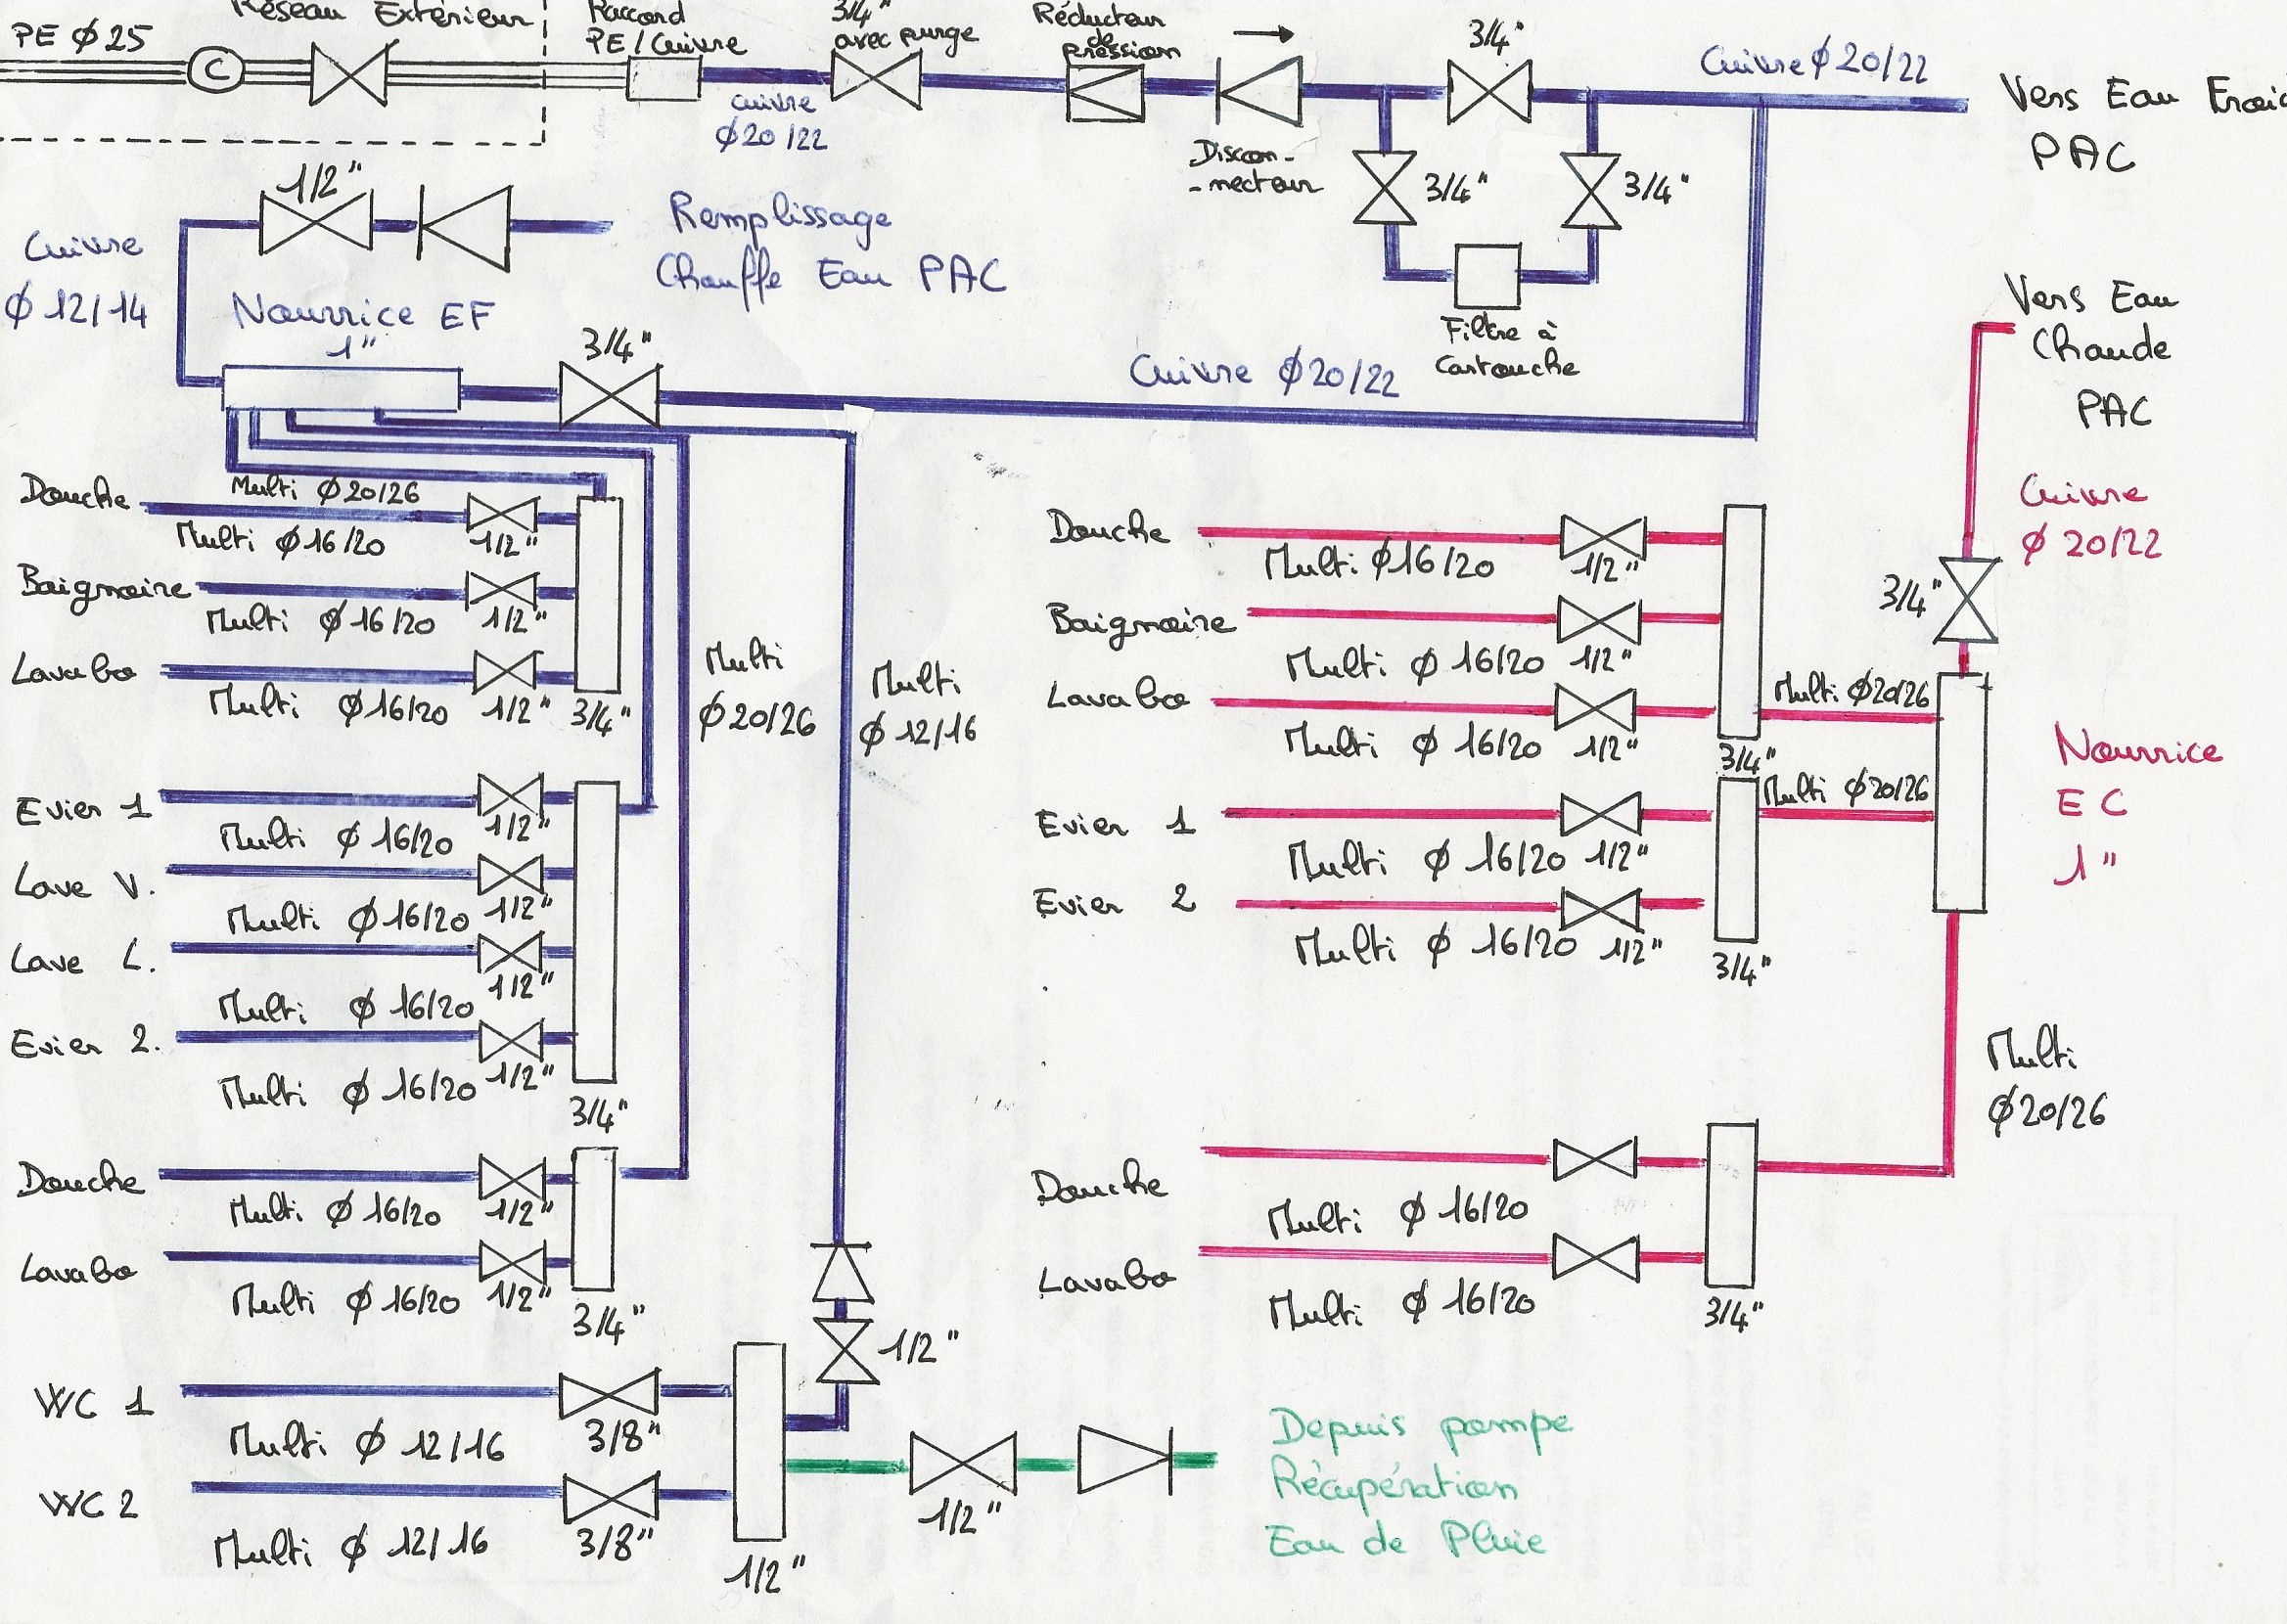 Réseau Extérieur
PE Ø 25
C
Raccord
PE / Cuivre
cuivre
Ø20/22
3/4"
avec purge
Réducteur
de
pression
Discon-
-necteur
3/4"
3/4"
3/4"
Filtre à
Cartouche
Cuivre Ø 20/22
Vers Eau
PAC
1/2"
Cuivre
Ø 12/14
Remplissage
Chauffe Eau PAC
Nourrice EF
1"
3/4"
Cuivre Ø20/22
Multi Ø20/26
Douche
Multi Ø16/20
1/2"
Baignoire
Multi Ø16/20
1/2"
Lavabo
Multi Ø16/20
1/2"
3/4"
Evier 1
Multi Ø 16/20
1/2"
Lave V.
Multi Ø16/20
1/2"
Lave L.
Multi Ø 16/20
1/2"
Evier 2.
Multi Ø 16/20
1/2"
3/4"
Douche
Multi Ø 16/20
1/2"
Lavabo
Multi Ø 16/20
1/2"
3/4"
Multi
Ø20/26
Multi
Ø 12/16
1/2"
WC 1
Multi Ø 12/16
3/8"
WC 2
Multi Ø 12/16
3/8"
1/2"
1/2"
Depuis pompe
Récupération
Eau de Pluie
Vers Eau
Chaude
PAC
Cuivre
Ø 20/22
3/4"
Douche
Multi Ø16/20
1/2"
Baignoire
Multi Ø 16/20
1/2"
Lavabo
Multi Ø 16/20
1/2"
3/4"
Multi Ø20/26
Evier 1
Multi Ø 16/20
1/2"
Evier 2
Multi Ø 16/20
1/2"
3/4"
Multi Ø20/26
Nourrice
EC
1"
Multi
Ø20/26
Douche
Multi Ø 16/20
Lavabo
Multi Ø 16/20
3/4"